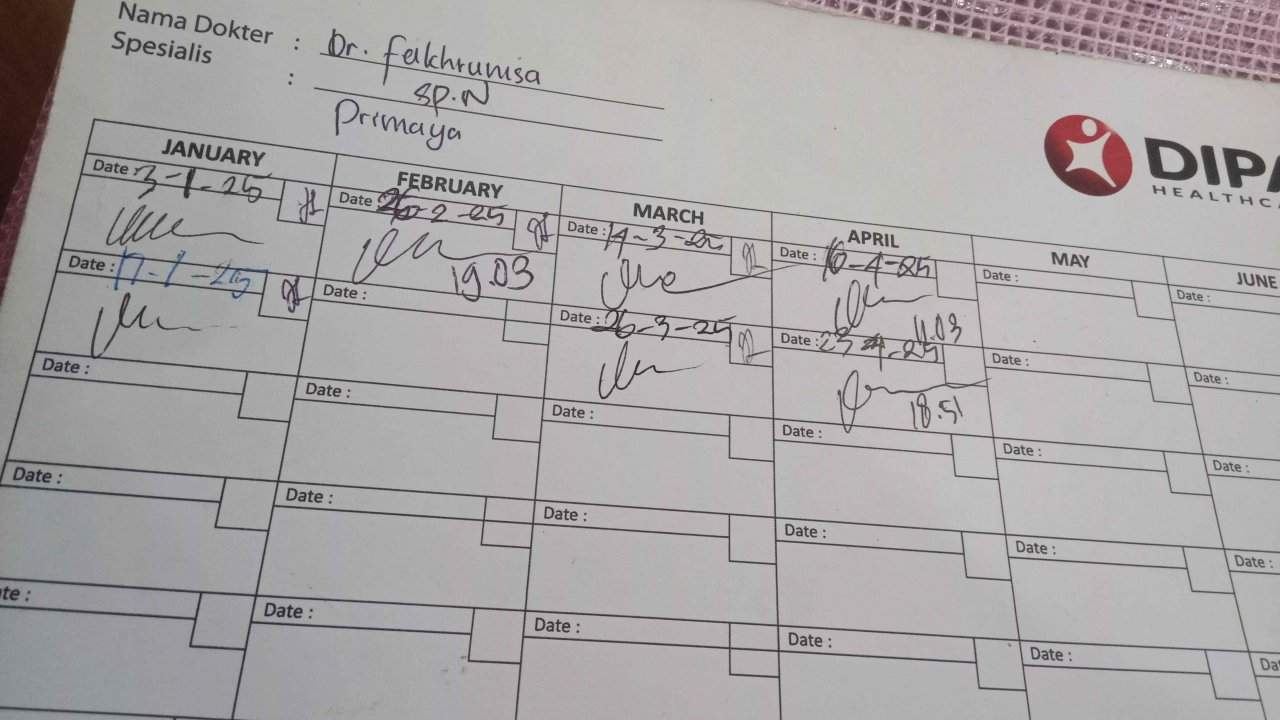 Nama Dokter : Dr. Fakhrunisa
Spesialis : Sp.N
Primaya
DIPA
HEALTHCA
JANUARY FEBRUARY MARCH APRIL MAY JUNE
Date : 3-1-25 Date : 26-2-25 Date : 14-3-25 Date : 16-4-25 Date : Date :
19.03 11.03
Date : 17-1-25 Date : Date : 26-3-25 Date : 23-4-25 Date : Date :
18.51
Date : Date : Date : Date : Date : Date :
Date : Date : Date : Date : Date : Date :
te : Date : Date : Date : Date : Da